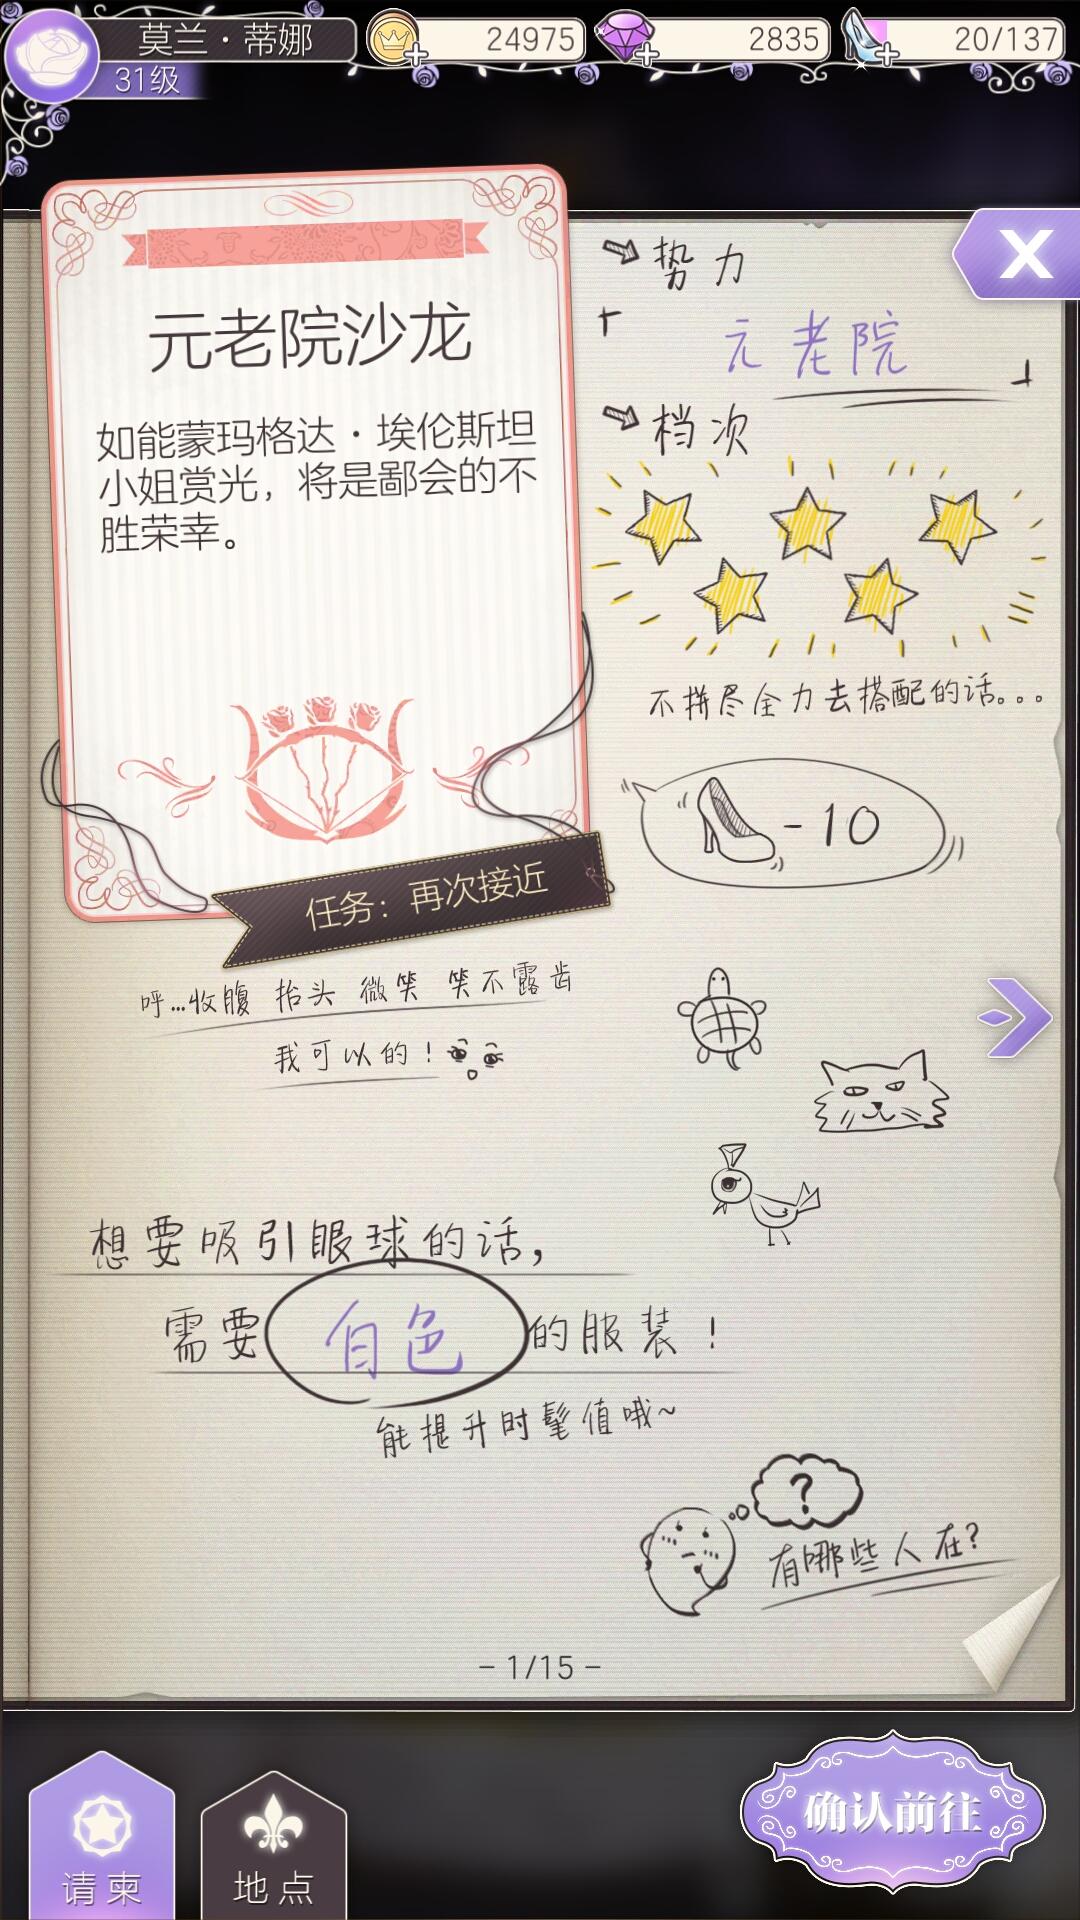 莫兰·蒂娜
31级
24975
2835
20/137
元老院沙龙
如能蒙玛格达·埃伦斯坦
小姐赏光，将是鄙会的不
胜荣幸。
任务：再次接近
势力
元老院
档次
不拼尽全力去搭配的话。。。
-10
呼...收腹 抬头 微笑 笑不露齿
我可以的！
想要吸引眼球的话，
需要白色的服装！
能提升时髦值哦~
?
有哪些人在?
- 1/15 -
请柬
地点
确认前往